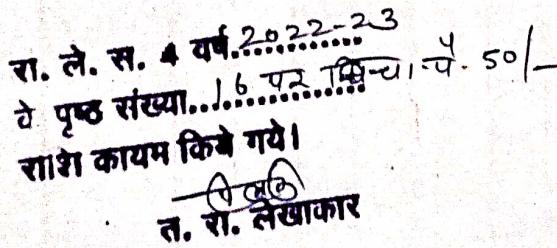 रा. ले. स. 4 वर्ष 2022-23
वे पृष्ठ संख्या 16 पर पै. 50/-
राशि कायम किये गये।
त. रा. लेखाकार